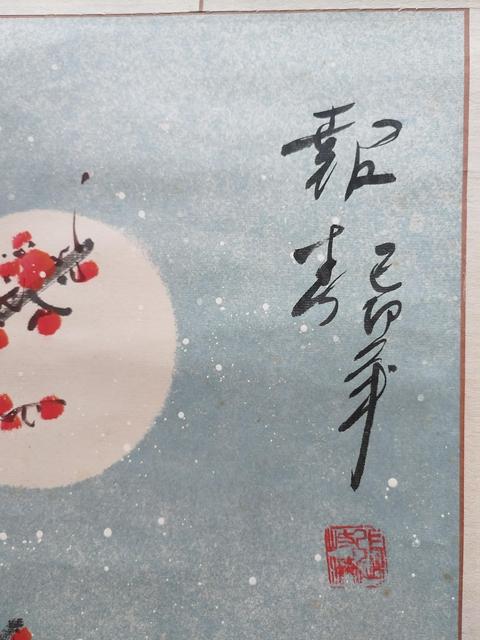 報春
己卯年